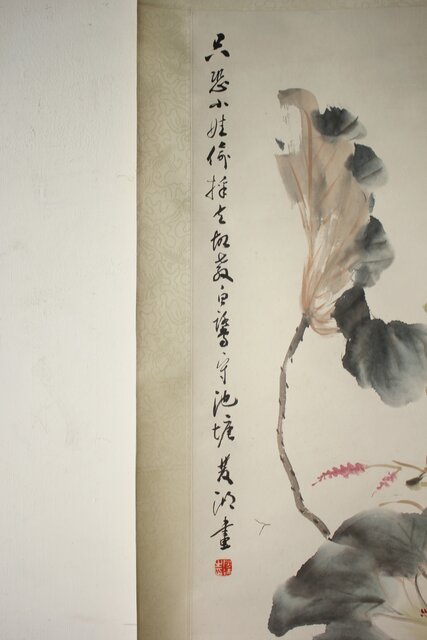 只恐小娃偷採去故教白鷺守池塘